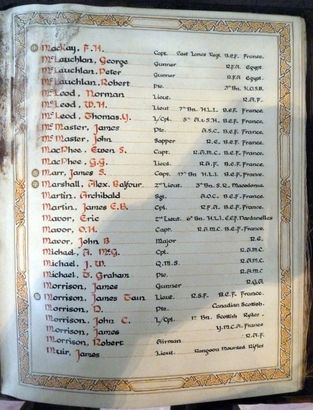 MacKay, F. H. Capt. East Lancs Regt. B.E.F. France.
McLauchlan, George Gunner R.F.A. Egypt.
McLauchlan, Peter Gunner R.F.A. Egypt.
McLauchlan, Robert Pte. K.O.S.B.
McLeod, Norman Lieut. R.A.F.
McLeod, W. H. Lieut 7th Bn. H.L.I. B.E.F. France.
McLeod, Thomas Y. L/Cpl. 5th A. & S.H. B.E.F. France.
McMaster, James Pte. A.S.C. B.E.F. France.
McMaster, John Sapper R.E. B.E.F. France.
MacPhee, Ewen S. Capt. R.A.M.C. B.E.F. France.
MacPhee, G.G. Lieut. R.A.F. B.E.F. France.
Marr, James S. Capt. 17th Bn. H.L.I. B.E.F. France.
Marshall, Alex. Balfour. 2nd Lieut. 3rd Bn. S.R. Macedonia
Martin, Archibald Sgt. A.O.C. B.E.F. France.
Martin, James E.B. Cpl. R.F.A. B.E.F. France.
Mavor, Eric 2nd Lieut. 6th Bn. H.L.I. Dardanelles
Mavor, O.H. Capt. R.A.M.C. B.E.F. France.
Mavor, John B Major R.E.
Michael, A. McG. Cpl. R.A.M.C.
Michael, J. W. Q.M.S. R.A.M.C.
Michael, T. Graham Pte. R.A.M.C.
Morrison, James Gunner R.G.A
Morrison, James Tain Lieut. R.S.F. B.E.F. France.
Morrison, D. Pte. Canadian Scottish.
Morrison, John C. L/Cpl. 1st Bn. Scottish Rifles.
Morrison, James Y.M.C.A. France
Morrison, Robert Airman R.A.F.
Muir, James Lieut. Rangoon Mounted Rifles